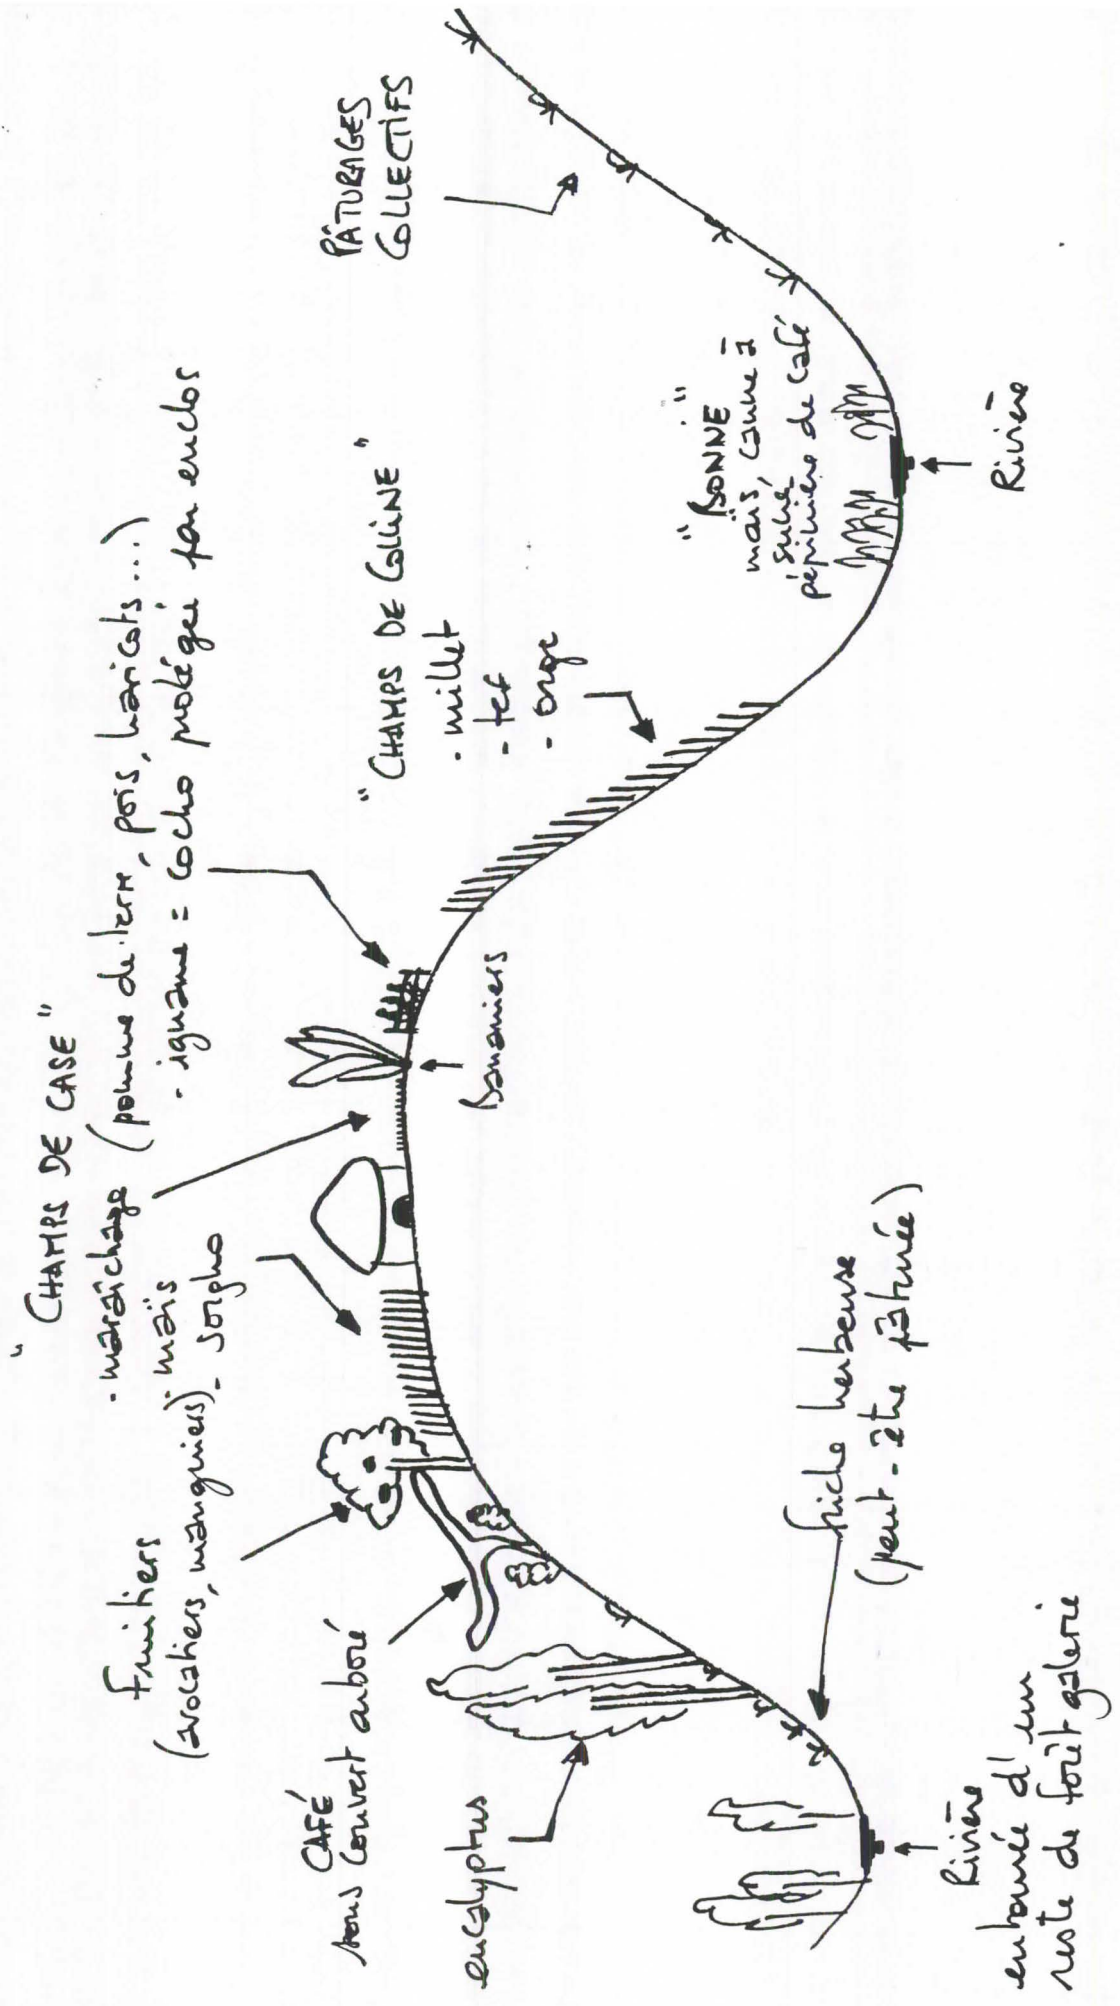 " CHAMPS DE CASE "
- maraîchage (pomme de terre, pois, haricots...)
- maïs
- igname = cocho protégée par enclos
- sorgho
Fruitiers
(avocatiers, manguiers)
CAFÉ
sous couvert arboré
eucalyptus
Rivière
entourée d'un
reste de forêt galerie
friche herbeuse
(peut-être pâturée)
Bananiers
" CHAMPS DE COLLINE "
- millet
- tef
- orge
" BONNE "
maïs, canne à
sucre
pépinière de café
Rivière
PÂTURAGES
COLLECTIFS